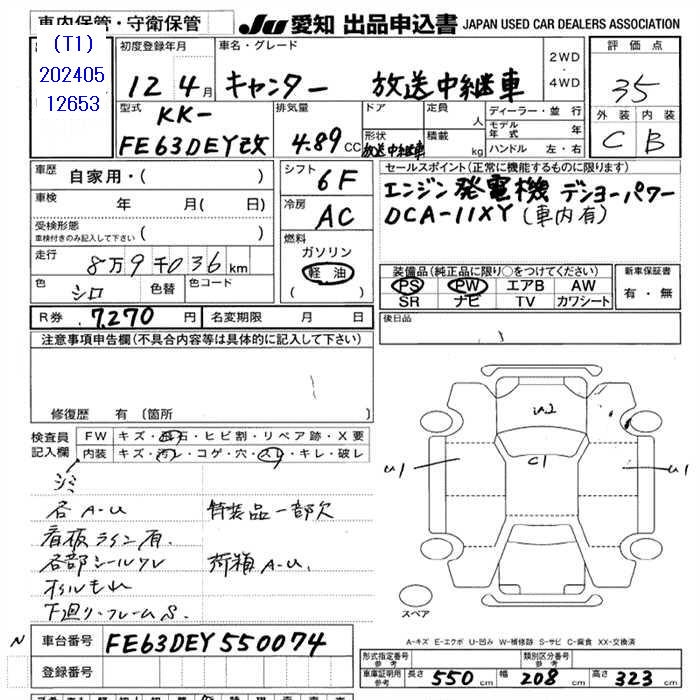 車内保管・守衛保管
JU 愛知 出品申込書 JAPAN USED CAR DEALERS ASSOCIATION
(T1)
202405
12653
初度登録年月
12年4月
車名・グレード
キャンター 放送中継車
2WD
・
4WD
評価点
35
外装 内装
C B
型式
KK-
FE63DEY改
排気量
4.89 CC
ドア
形状
放送中継車
定員
人
積載
kg
ディーラー・並行
モデル年式 年
ハンドル 左・右
車歴
自家用・( )
車検
年 月( 日)
受検形態
車検付きのみ記入して下さい ( )
走行
8万9千036km
色
シロ
色替
色コード
シフト
6F
冷房
AC
燃料
ガソリン
軽油
( )
セールスポイント(正常に機能するものに限ります)
エンジン発電機 デンヨーパワー
DCA-11XY(車内有)
装備品(純正品に限り○をつけてください)
PS PW エアB AW
SR ナビ TV カワシート
新車保証書
有・無
R券 7,270円
名変期限 月 日
後日品
注意事項申告欄(不具合内容等は具体的に記入して下さい)
修復歴 有(箇所
検査員
記入欄
FW キズ・飛石・ヒビ割・リペア跡・X要
内装 キズ・汚レ・コゲ・穴・スレ・キレ・破レ
シミ
各A-U 特装品一部欠
看板ライン有.
各部シールワレ 荷箱A-U.
オイルもれ
下廻り・フレームS.
U2
C1
U1
U1
スペア
A-キズ E-エクボ U-凹み W-補修跡 S-サビ C-腐食 XX-交換済
N
車台番号 FE63DEY550074
登録番号
形式指定番号
参考
類別区分番号
参考
車庫証明用
参考
長さ 550cm 幅 208cm 高さ 323cm